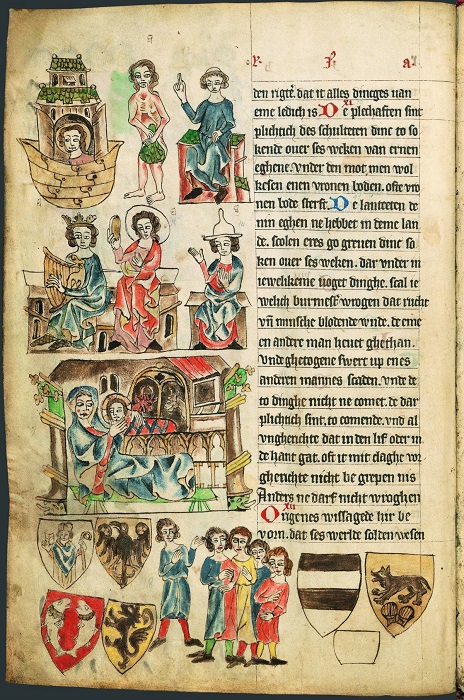 den rigtē. dat it alles dinges uan
eme ledich is De plechaften sint
plichtich des schulteten dinc to so
kende ouer ses weken van ernen
eghene. vnder den mot men wol
kesen enen vronen boden. ofte vro
nen bode sterft. De lantseten de
nin eghen ne hebbet in deme lan
de. scolen eres go greuen dinc so
ken ouer ses weken. dar vnder in
iewelikeme uoget dinghe. scal ie
welich burmestē wrogen dat rucht
vn̄ minsche blodende wnde. de eme
en andere man heuet ghethan.
vnde ghetogene swert up enes
anderen mannes scaden. vnde de
to dinghe nicht ne comet. de dar
plichtich sint. to comende. vnd al
vngherichte dat in den lif oder in
de hant gat. oft it mit claghe vor
gherichte nicht be grepen nis
Anders ne darf nicht wroghen
xii
Origenes wissagede hir be
vorn. dat ses werlde solden wesen